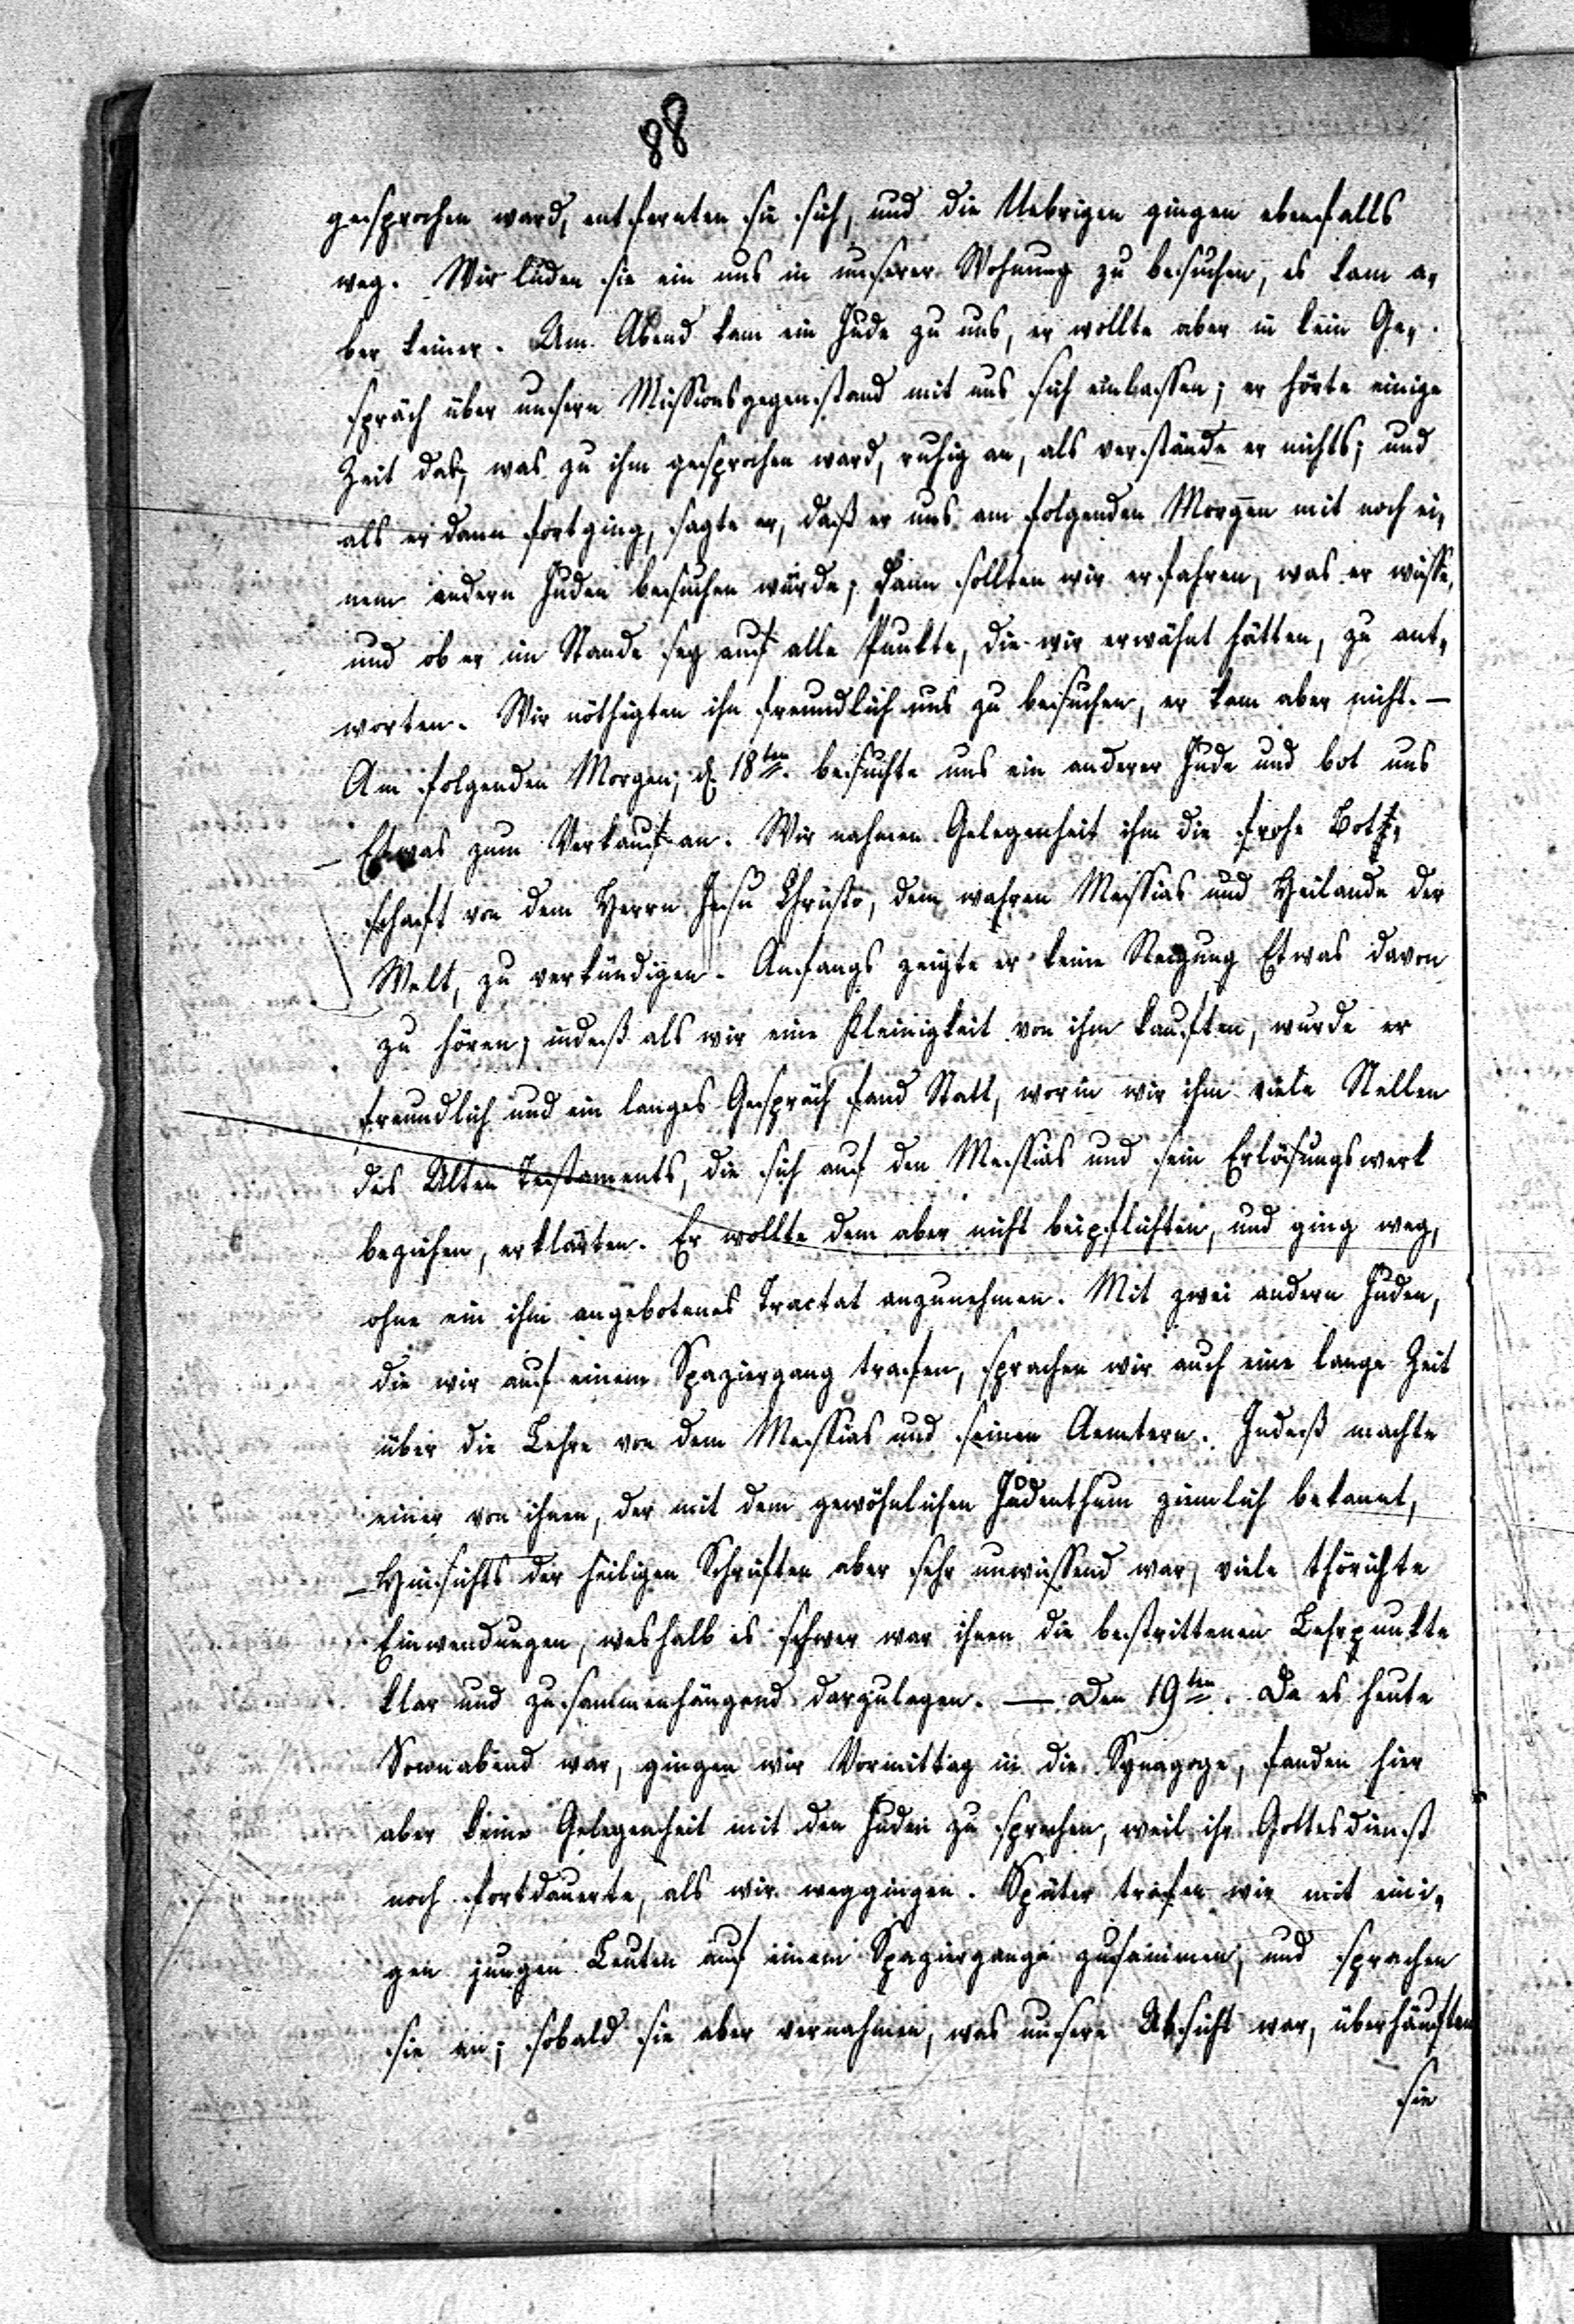 88
gesprochen ward, entfernten sie sich, und die Uebrigen gingen ebenfalls
weg. Wir luden sie ein uns in unserer Wohnung zu besuchen, es kam a„
ber keiner. Am Abend kam ein Jude zu uns, er wollte aber in kein Ge„
spräch über unsern Missionsgegenstand mit uns sich einlassen; er hörte einige
Zeit das, was zu ihm gesprochen ward, ruhig an, als verstände er nichts; und
als er dann fortging, sagte er, daß er uns am folgenden Morgen mit noch ei„
nem andern Juden besuchen würde; dann sollten wir erfahren, was er wisse,
und ob er im Stande sey auf alle Punkte, die wir erwähnt hätten, zu ant„
worten. Wir nöthigten ihn freundlich uns zu besuchen, er kam aber nicht. —
Am folgenden Morgen, d. 18ten. besuchte uns ein anderer Jude und bot uns
Etwas zum Verkauf an. Wir nahmen Gelegenheit ihm die frohe Bot„
schaft von dem Herrn Jesu Christo, dem wahren Messias und Heilande der
Welt, zu verkündigen. Anfangs zeigte er keine Neigung Etwas davon
zu hören; indeß als wir eine Kleinigkeit von ihm kauften, wurde er
freundlich und ein langes Gespräch fand Statt, worin wir ihm viele Stellen
des Alten Testaments, die sich auf den Messias und sein Erlösungswerk
beziehen, erklärten. Er wollte dem aber nicht beipflichten, und ging weg,
ohne ein ihm angebotenes Tractat anzunehmen. Mit zwei andern Juden,
die wir auf einem Spaziergang trafen, sprachen wir auch eine lange Zeit
über die Lehre von dem Messias und seinen Aemtern. Indeß machte
einer von ihnen, der mit dem gewöhnlichen Judenthum ziemlich bekannt,
Hinsichts der heiligen Schriften aber sehr unwissend war, viele thörichte
Einwendungen, weshalb es schwer war ihnen die bestrittenen Lehrpunkte
klar und zusammenhängend darzulegen. — Den 19ten. Da es heute
Sonnabend war, gingen wir Vormittag in die Synagoge, fanden hier
aber keine Gelegenheit mit den Juden zu sprechen, weil ihr Gottesdienst
noch fortdauerte, als wir weggingen. Später trafen wir mit eini„
gen jungen Leuten auf einem Spaziergange zusammen, und sprachen
sie an; sobald sie aber vernahmen, was unsere Absicht war, überhäuften
sie